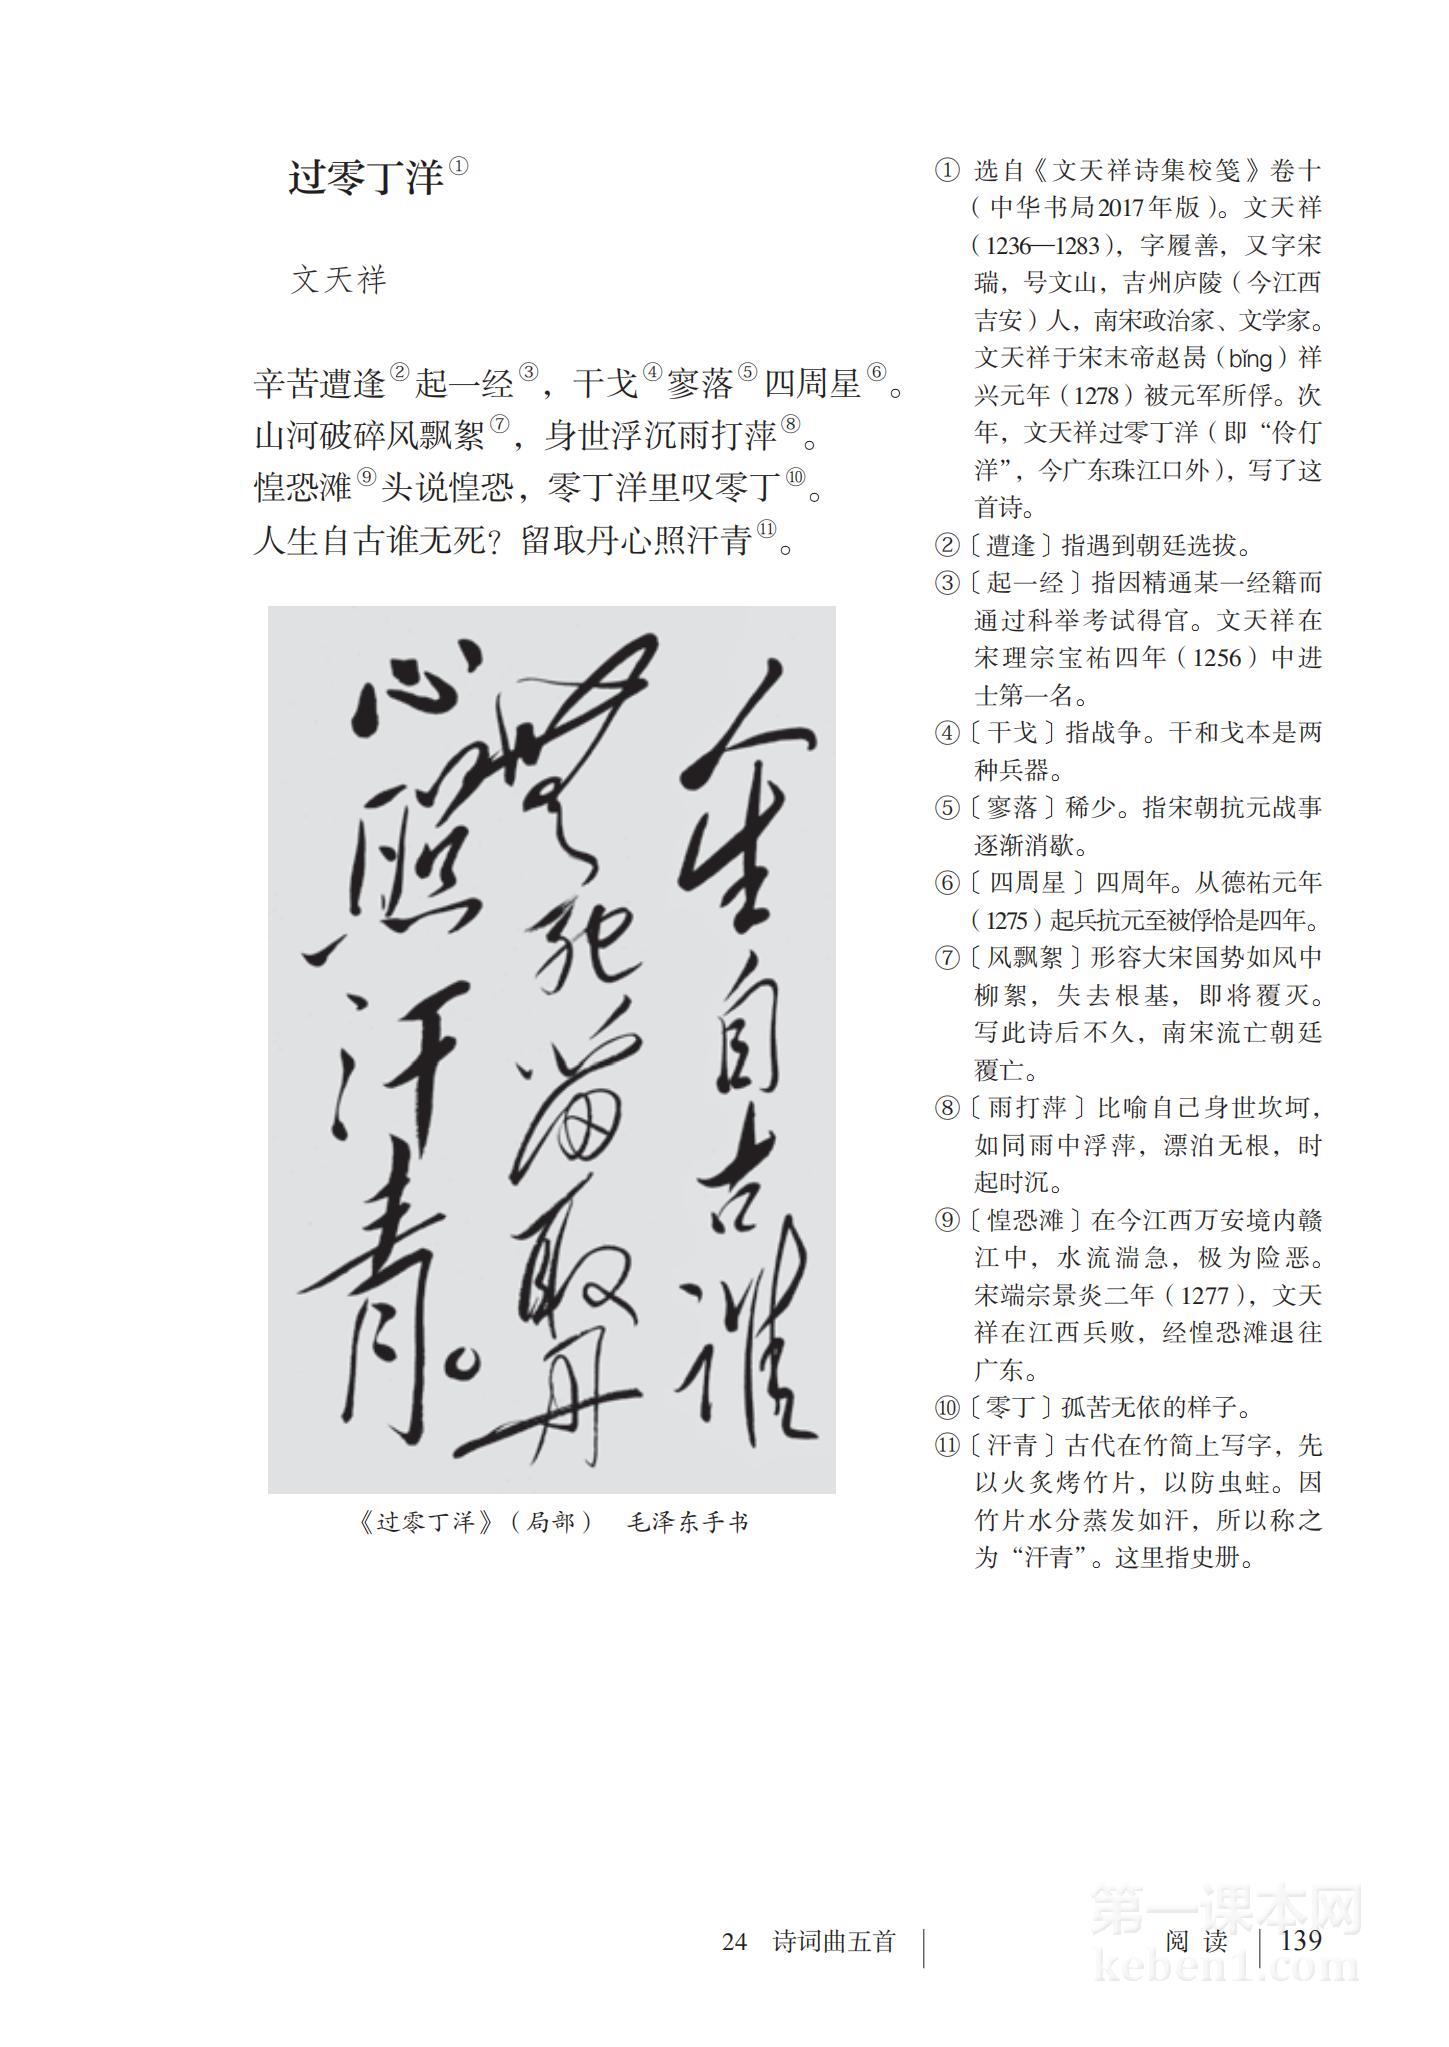 过零丁洋①
文天祥
辛苦遭逢②起一经③，干戈④寥落⑤四周星⑥。
山河破碎风飘絮⑦，身世浮沉雨打萍⑧。
惶恐滩⑨头说惶恐，零丁洋里叹零丁⑩。
人生自古谁无死？留取丹心照汗青⑪。
人生自古谁
无死留取丹
心照汗青。
《过零丁洋》（局部）　毛泽东手书
① 选自《文天祥诗集校笺》卷十
（中华书局2017年版）。文天祥
（1236—1283），字履善，又字宋
瑞，号文山，吉州庐陵（今江西
吉安）人，南宋政治家、文学家。
文天祥于宋末帝赵昺（bǐng）祥
兴元年（1278）被元军所俘。次
年，文天祥过零丁洋（即“伶仃
洋”，今广东珠江口外），写了这
首诗。
②〔遭逢〕指遇到朝廷选拔。
③〔起一经〕指因精通某一经籍而
通过科举考试得官。文天祥在
宋理宗宝祐四年（1256）中进
士第一名。
④〔干戈〕指战争。干和戈本是两
种兵器。
⑤〔寥落〕稀少。指宋朝抗元战事
逐渐消歇。
⑥〔四周星〕四周年。从德祐元年
（1275）起兵抗元至被俘恰是四年。
⑦〔风飘絮〕形容大宋国势如风中
柳絮，失去根基，即将覆灭。
写此诗后不久，南宋流亡朝廷
覆亡。
⑧〔雨打萍〕比喻自己身世坎坷，
如同雨中浮萍，漂泊无根，时
起时沉。
⑨〔惶恐滩〕在今江西万安境内赣
江中，水流湍急，极为险恶。
宋端宗景炎二年（1277），文天
祥在江西兵败，经惶恐滩退往
广东。
⑩〔零丁〕孤苦无依的样子。
⑪〔汗青〕古代在竹简上写字，先
以火炙烤竹片，以防虫蛀。因
竹片水分蒸发如汗，所以称之
为“汗青”。这里指史册。
第一课本网
keben1.com
24　诗词曲五首
阅读　139